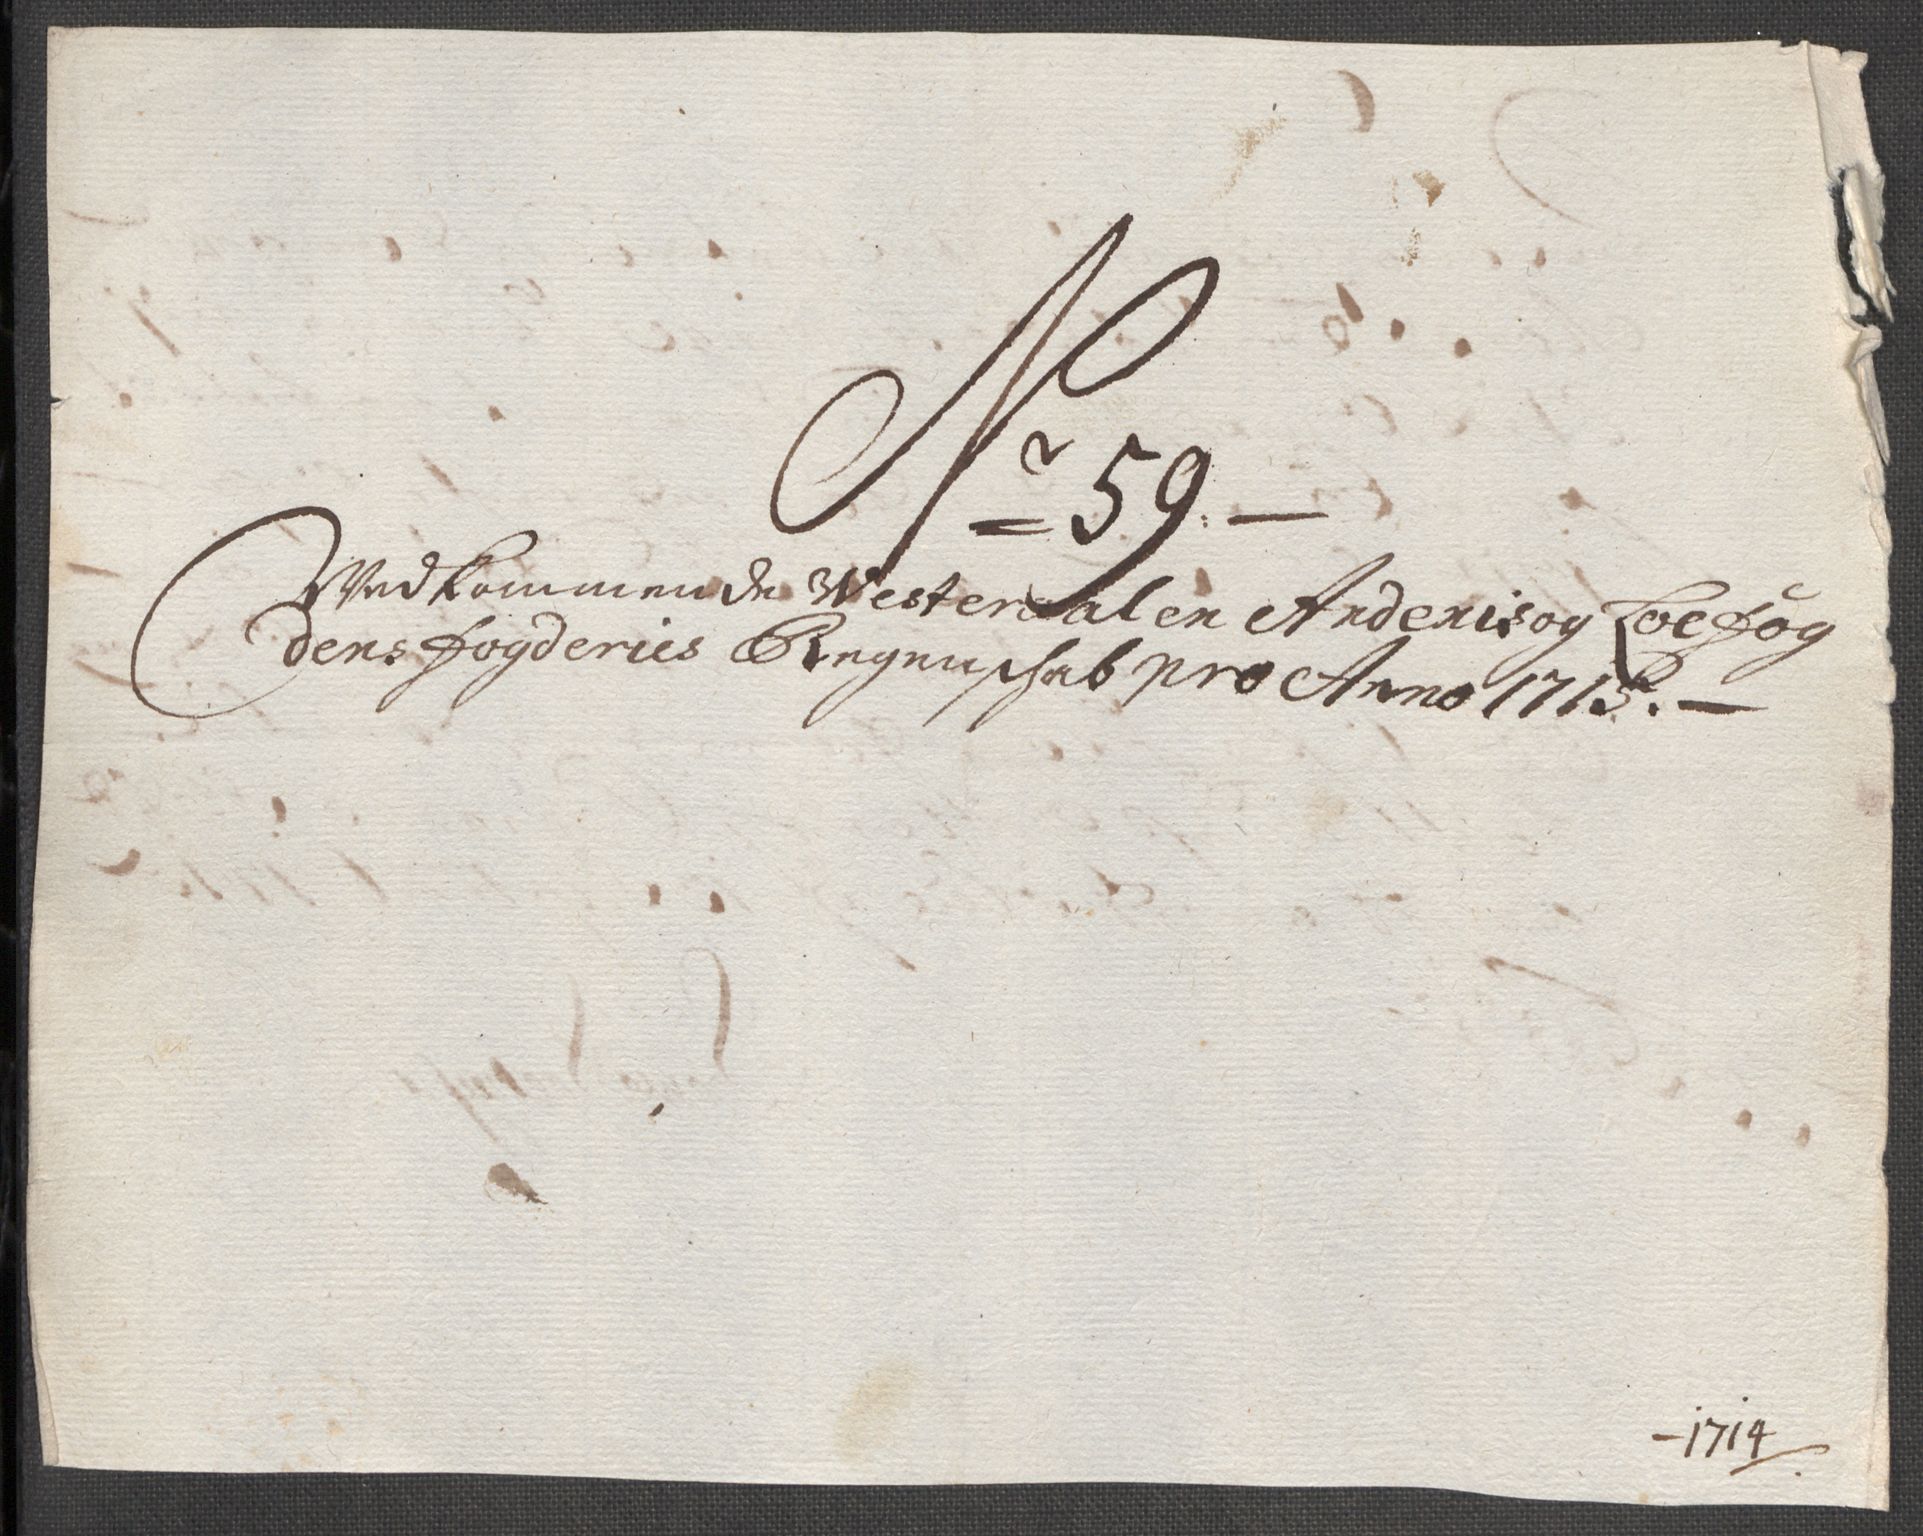 No 59. —
Vedkommende Westeraalen Andenis og Loefog
dens fogderies Regnschab pro Anno 1715. —
- 1714